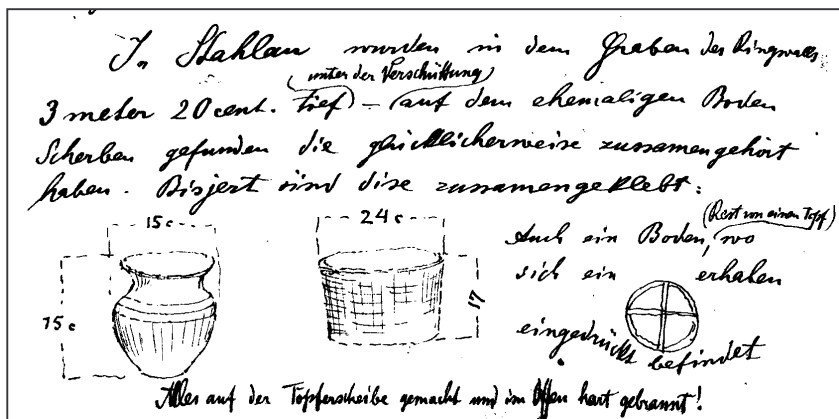 In Stahlau wurden in dem Graben des Ringwalls
(unter der Verschüttung)
3 meter 20 cent. tief) – (auf dem ehemaligen Boden
Scherben gefunden die glücklicherweise zussamengehört
haben. Bisjert sind dise zusamengeklebt:
15 c
24 c
15 c
17
(Rest von einem Topf)
Auch ein Boden, wo
sich ein erhaben
eingedrückt befindet
Alles auf der Töpferscheibe gemacht und im Offen hart gebrannt!